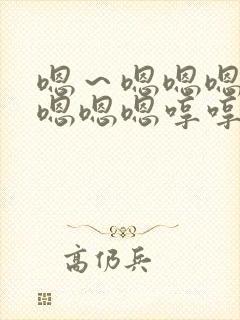 嗯～嗯嗯嗯
嗯嗯嗯哼哼
高仍兵